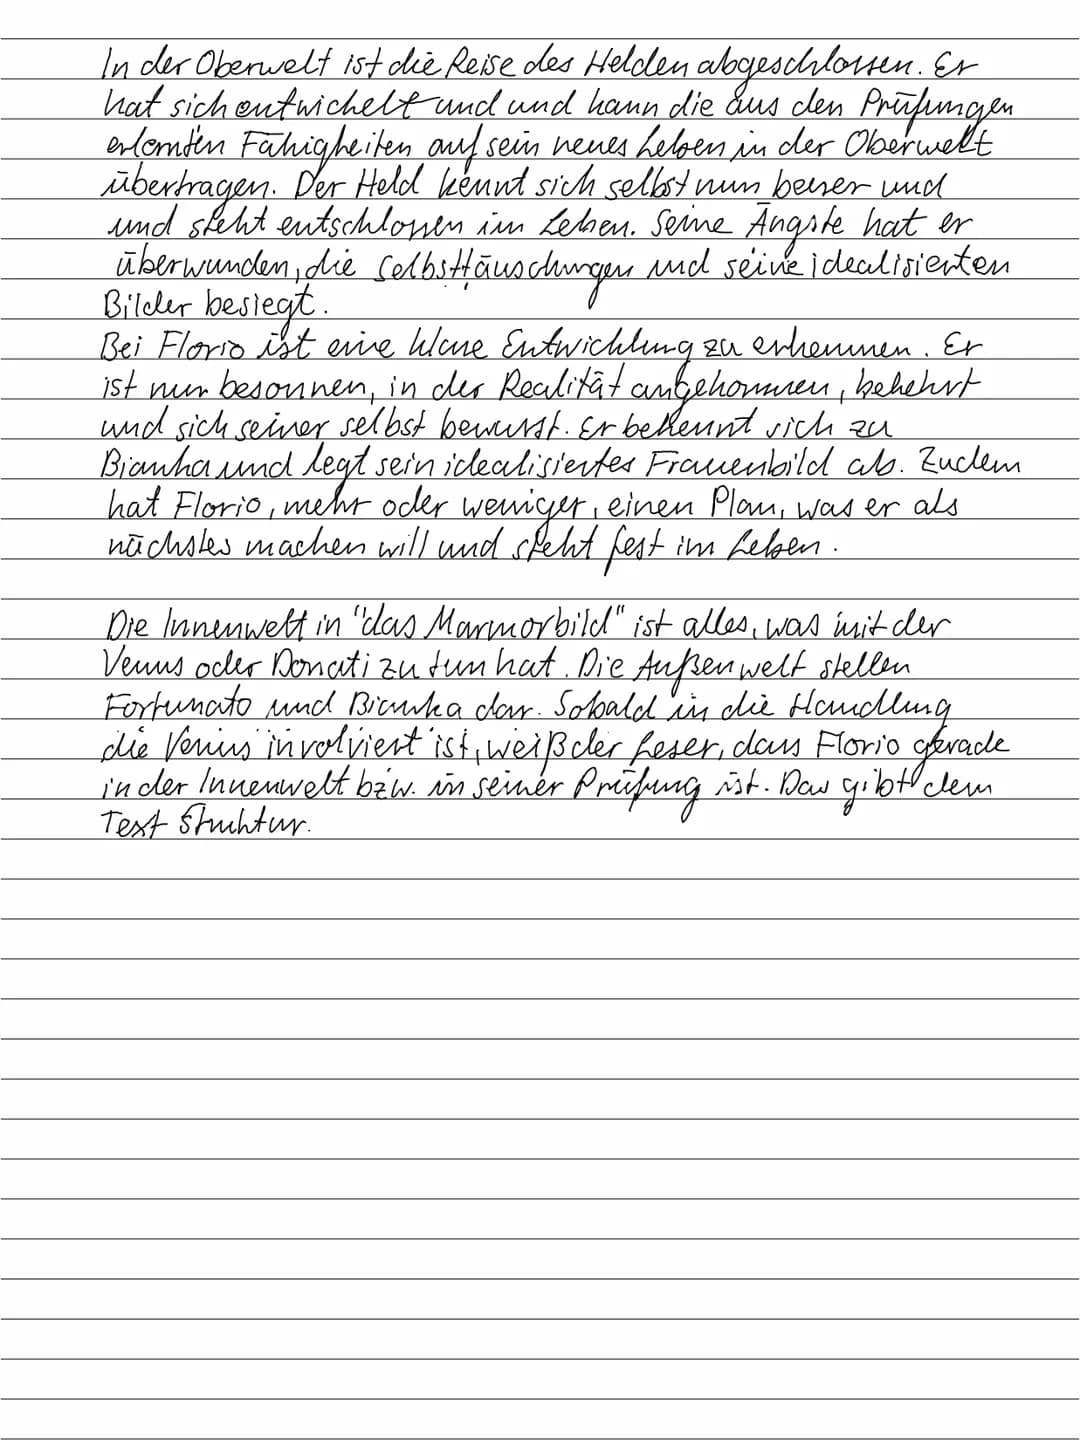 In der Oberwelt ist die Reise des Helden abgeschlossen. Er
hat sich entwickelt und und kann die aus den Prüfungen
erlernten Fähigkeiten auf sein neues Leben in der Oberwelt
übertragen. Der Held kennt sich selbst nun besser und
und steht entschlossen im Leben. Seine Ängste hat er
überwunden, die Selbsttäuschungen und seine idealisierten
Bilder besiegt.
Bei Florio ist eine klare Entwicklung zu erkennen. Er
ist nun besonnen, in der Realität angekommen, bekehrt
und sich seiner selbst bewusst. Er bekennt sich zu
Bianka und legt sein idealisiertes Frauenbild ab. Zudem
hat Florio, mehr oder weniger, einen Plan, was er als
nächstes machen will und steht fest im Leben.
Die Innenwelt in "das Marmorbild" ist alles, was mit der
Venus oder Donati zu tun hat. Die Außenwelt stellen
Fortunato und Bianka dar. Sobald in die Handlung
die Venus involviert ist, weiß der Leser, dass Florio gerade
in der Innenwelt bzw. in seiner Prüfung ist. Das gibt dem
Text Struktur.